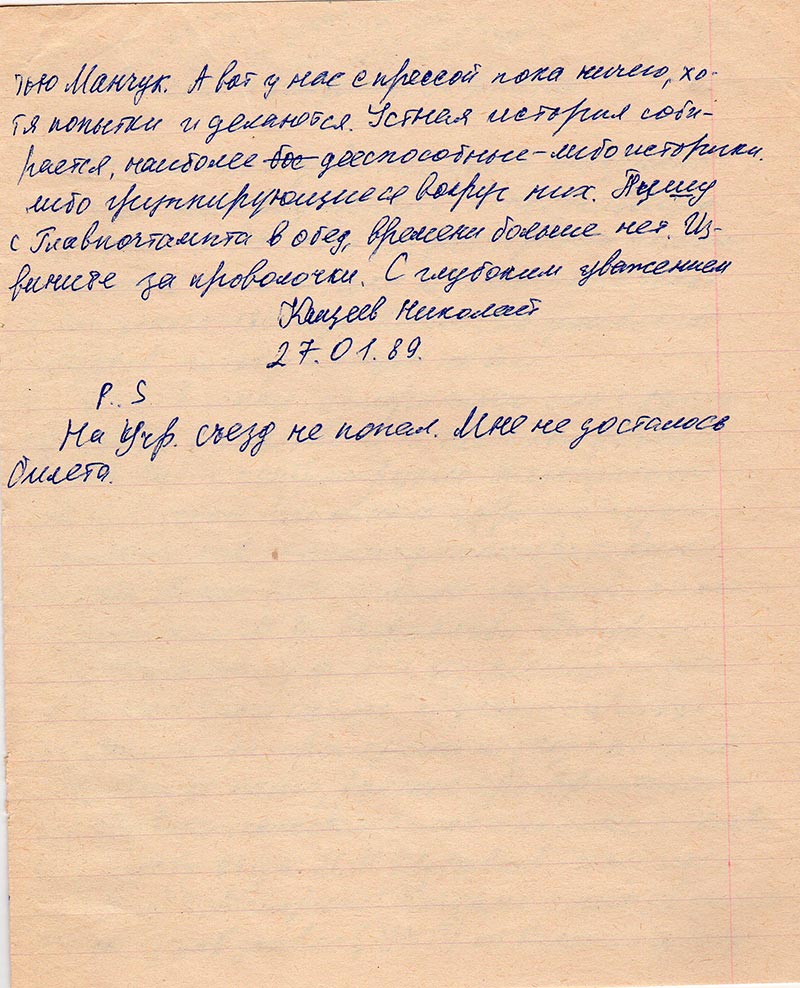 тью Манчук. А вот у нас с прессой пока ничего, хо-
тя попытки и делаются. Устная история соби-
рается, наиболее бос дееспособные - либо историки,
либо группирующиеся вокруг них. Пишу
с Главпочтампта в обед, времени больше нет. Из-
вините за проволочки. С глубоким уважением
Николай
27.01.89.
P.S
На Учр. съезд не попал. Мне не досталось
билета.